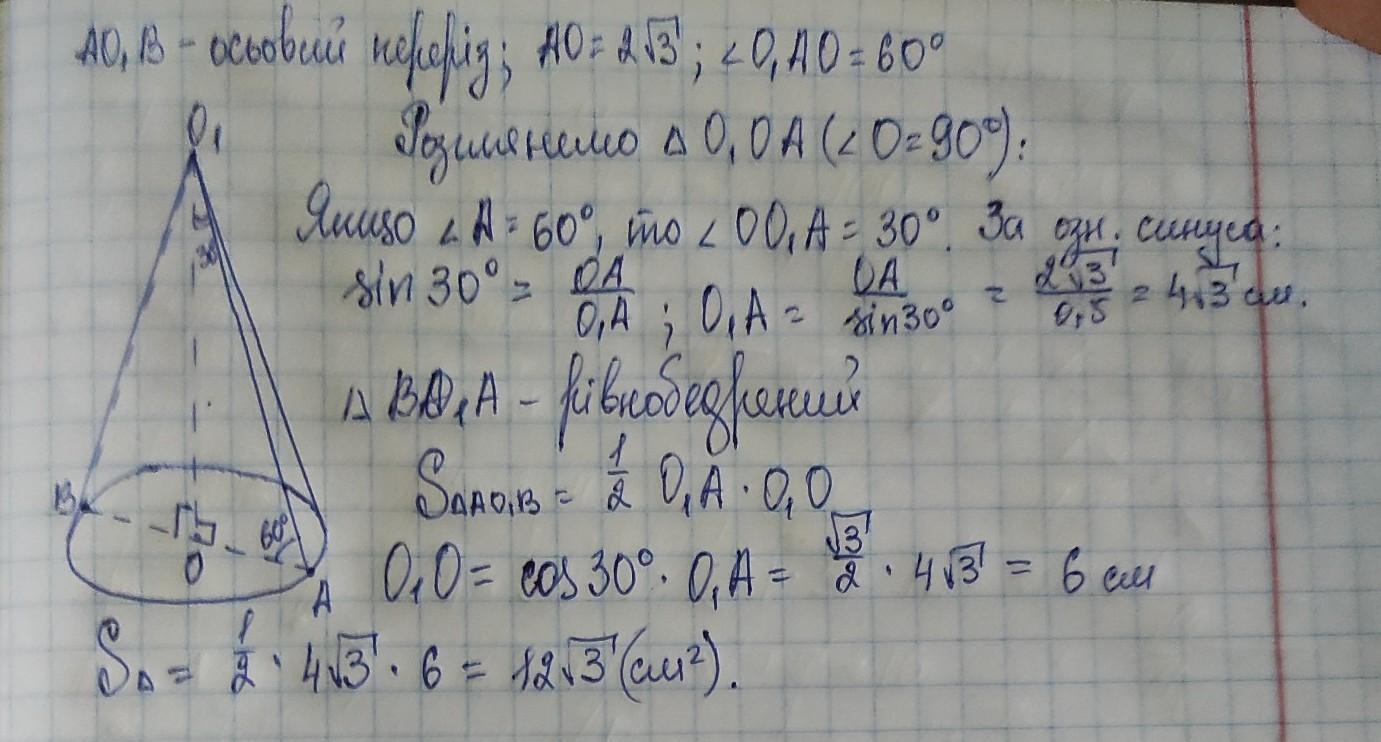 AO₁B - осьовий переріз; AO = 2√3; ∠O₁AO = 60°
Розглянемо Δ O₁OA (∠O = 90°):
Якщо ∠A = 60°, то ∠OO₁A = 30°. За озн. синуса:
sin 30° = OA/O₁A ; O₁A = OA/sin30° = 2√3/0,5 = 4√3 см.
Δ BO₁A - рівнобедрений
S ΔAO₁B = 1/2 O₁A · O₁O
O₁O = cos 30° · O₁A = √3/2 · 4√3 = 6 см
SΔ = 1/2 · 4√3 · 6 = 12√3 (см²).
O₁
30
B
O
60°
A